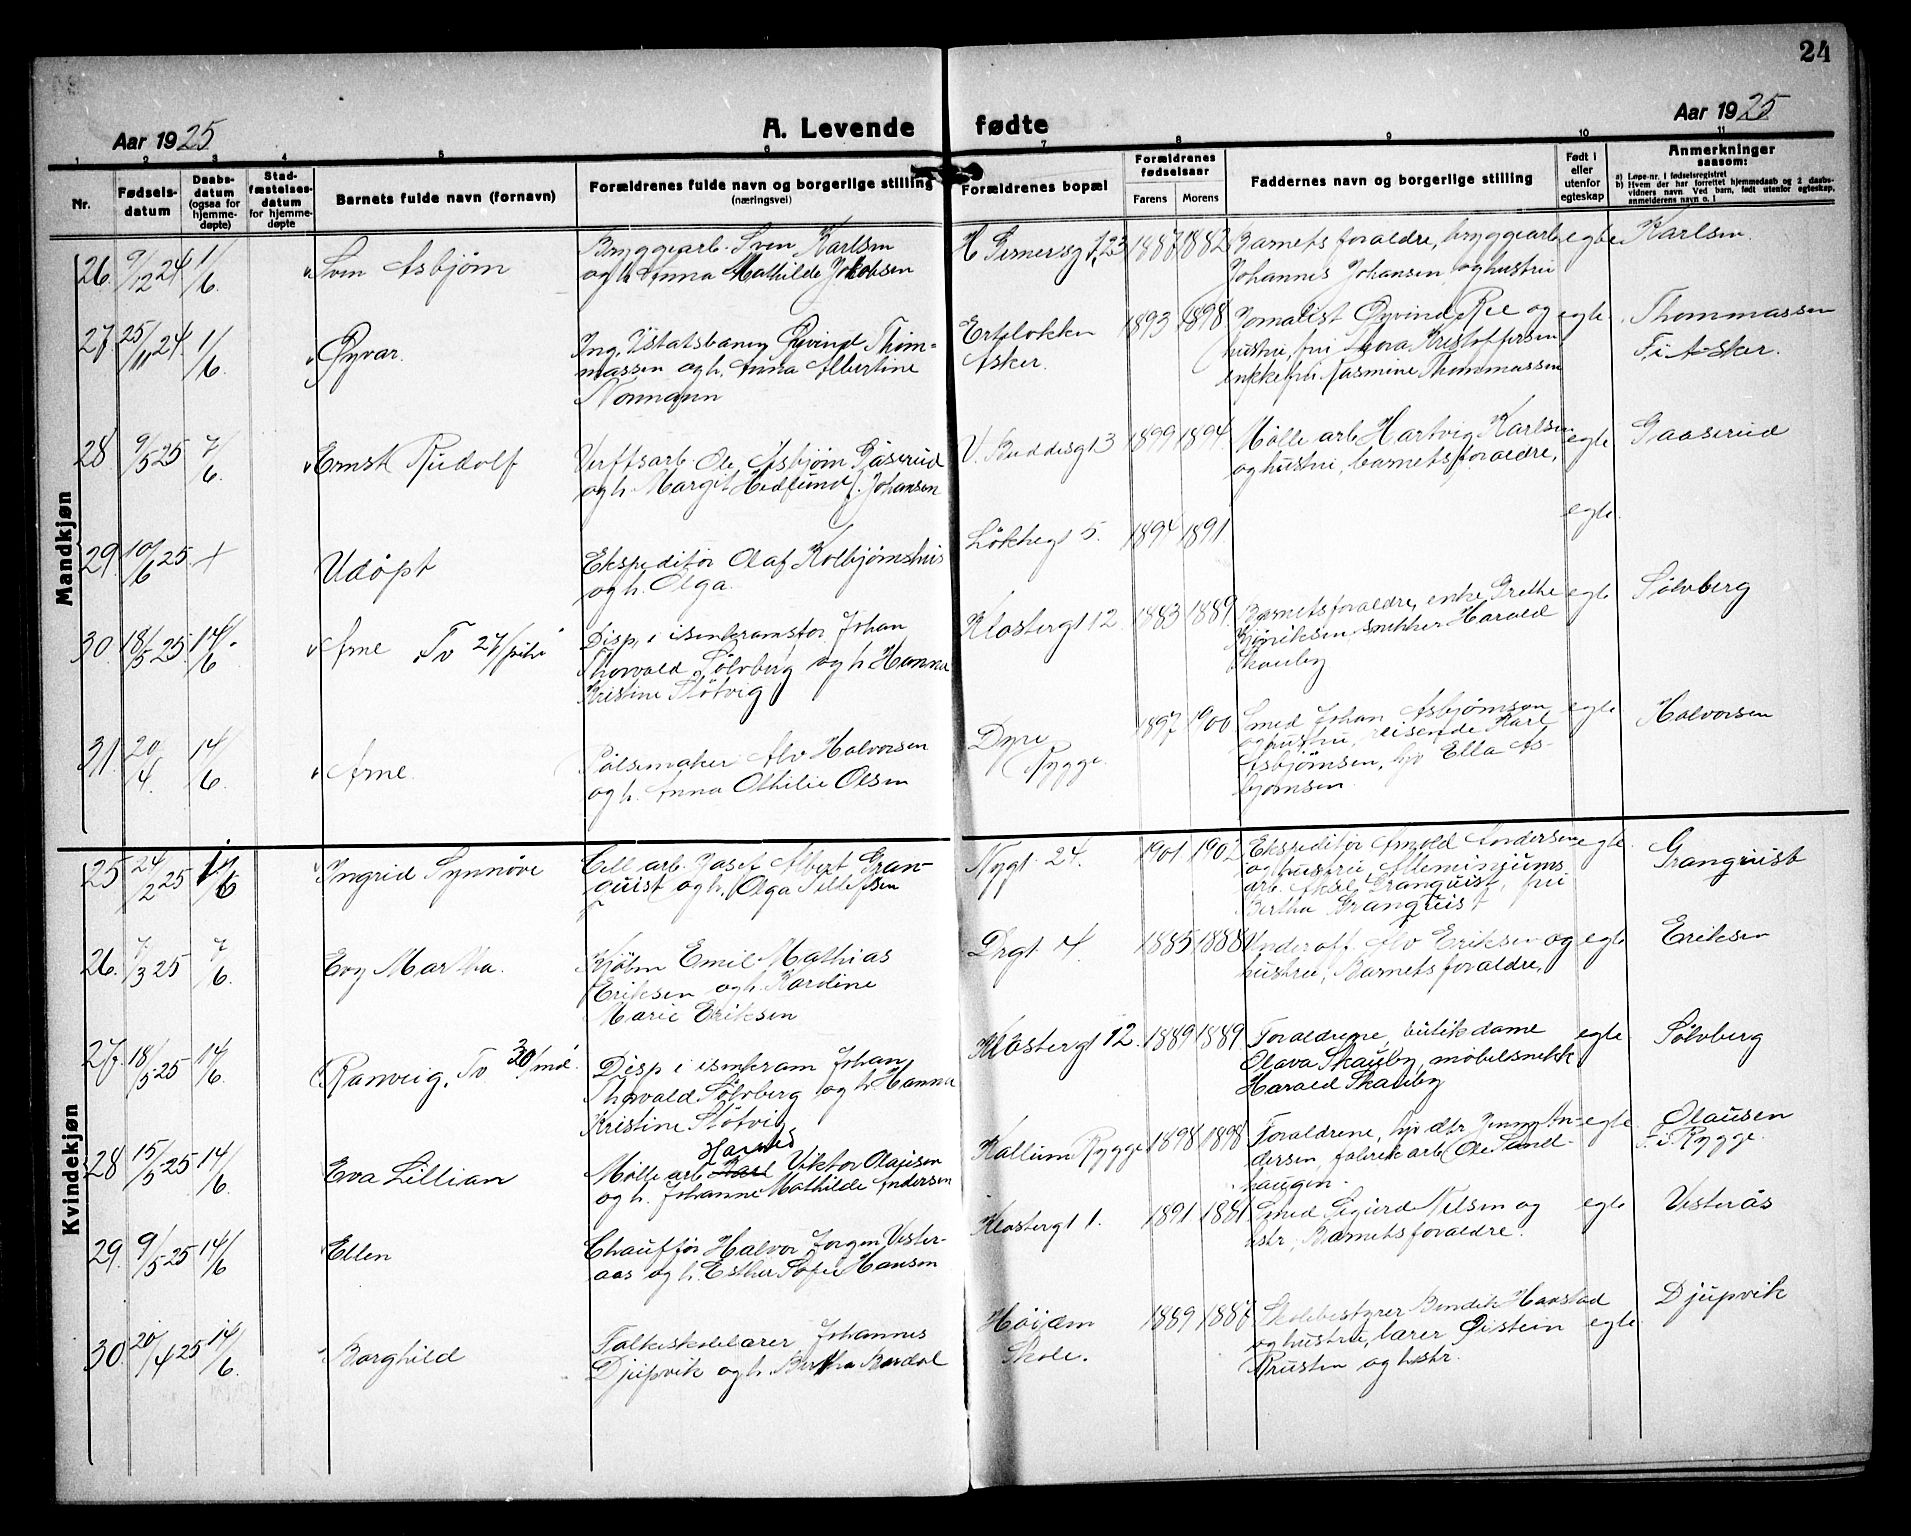 24
Aar 1925
A. Levende fødte
Aar 1925
1 2 3 4 5 6 7 8 9 10 11
Nr.
Fødsels-
datum
Daabs-
datum
(ogsaa for
hjemme-
døpte)
Stad-
fæstelses-
datum
for hjemme-
døpte
Barnets fulde navn (fornavn)
Forældrenes fulde navn og borgerlige stilling
(næringsvei)
Forældrenes bopæl
Forældrenes
fødselsaar
Farens Morens
Faddernes navn og borgerlige stilling
Født i
eller
utenfor
egteskap
Anmerkninger
saasom:
a) Løpe-nr. i fødselsregistret
b) Hvem der har forrettet hjemmedaab og 2 daabs-
vidners navn. Ved barn, født utenfor egteskap,
anmelderens navn o. l
Mandkjøn
26. 9/12 24 1/6 Sven Asbjørn
Bryggearb. Sven Karlsen
og h. Anna Mathilde Jakobsen
H. Gernersg 1,23 1887 1882
Barnets foraldre, bryggearb
Johannes Johansen, og hustru
egte Karlsen
27 25/11 24 1/6 Øyvar.
Ing. v statsbanen Øyvind Thom-
massen og h. Anna Albertine
Normann
Erteløkken
Asker.
1893 1898
Jornalist Øyvind Ree og
hustru, fru Thora Kristoffersen
enkefru Jasmine Thommassen
egte Thommassen
F. i Asker.
28 9/5 25 7/6 Ernst Rudolf
Verftsarb. Ole Asbjørn Gåserud
og h. Margit Hedlund f. Johansen
V. Buddesgt 3 1899 1894
Mølle arb Hartvig Karlsen
og hustru, barnets foraldre,
egte Gaaserud
29. 10/6 25. + Udøpt
Ekspeditør Olaf Kolbjørnshus
og h. Olga.
Løkkegt 5. 1894 1891
egte
30. 18/5 25. 14/6 Arne Tv 27/piker
Disp. i isenkramsfor Johan
Thorvald Sølvberg og h Hanna
Kristine Støtvig
Klostergt 12 1883 1889
Barnets foraldre, enke Grethe
Kjøniksen snekker Harald
Skauby
egte Sølvberg
31. 20/4. 14/6 Arne.
Pølsemaker Alv Halvorsen
og h. Anna Othilie Olsen
Dyre
Rygge.
1897 1900
Smed Johan Asbjørnsen
og hustru, reisende Karl
Asbjørnsen, hjv Ella As-
bjørnsen.
egte Halvorsen
Kvindekjøn
25 24/2 25 1/6 Ingrid Synnøve
Cell arb. Josef Albert Gran-
quist og h. Olga Tellefsen
Nygt. 24. 1901 1902
Ekspeditør Arnold Andersen
og hustru, Alleminiums
arb. Aksel Granquist, fru
Bertha Granquist
egte. Granquist
26. 7/3 25 7/6 Evy Martha.
Kjøbm Emil Mathias
Eriksen og h. Kardine
Marie Eriksen
Drgt 4. 1885 1888
Underoff. Alv Eriksen og
hustru, Barnets foraldre,
egte Eriksen
27. 18/5 25 14/6 Ranveig, Tv 30/md.
Disp i isenkram Johan
Thorvald Sølvberg og h Hanna
Kristine Støtvig
Klostergt 12. 1889 1889
Foraldrene, butikdame
Olava Skauby, møbelsnekk
Harald Skauby
egte Sølvberg
28 15/5 25 14/6 Eva Lillian
Mølle arb. Viktor Olausen
og h. Johanne Mathilde Andersen
Kallum Rygge 1898 1898
Foraldrene, hjv dtr Jenny An-
dersen, fabrik arb Ole Sand-
haugen.
egte Olausen
F. i. Rygge.
29. 9/5 25 14/6 Ellen
Chauffør Halvor Jørgen Vester-
aas og h. Esther Sofie Hansen
Klostergt 1. 1891 1881
Smed Sigurd Nilsen og
ustr, Barnets foraldre.
egte Vesterås
30. 20/4 25 14/6 Borghild
Folkeskolelærer Johannes
Djupvik og h. Bertha Bardal
Høiden
Skole.
1889 1887
Skolebestyrer Bendik Harstad
og hustru, lærer Øistein
Krusten og hustr.
egte. Djupvik